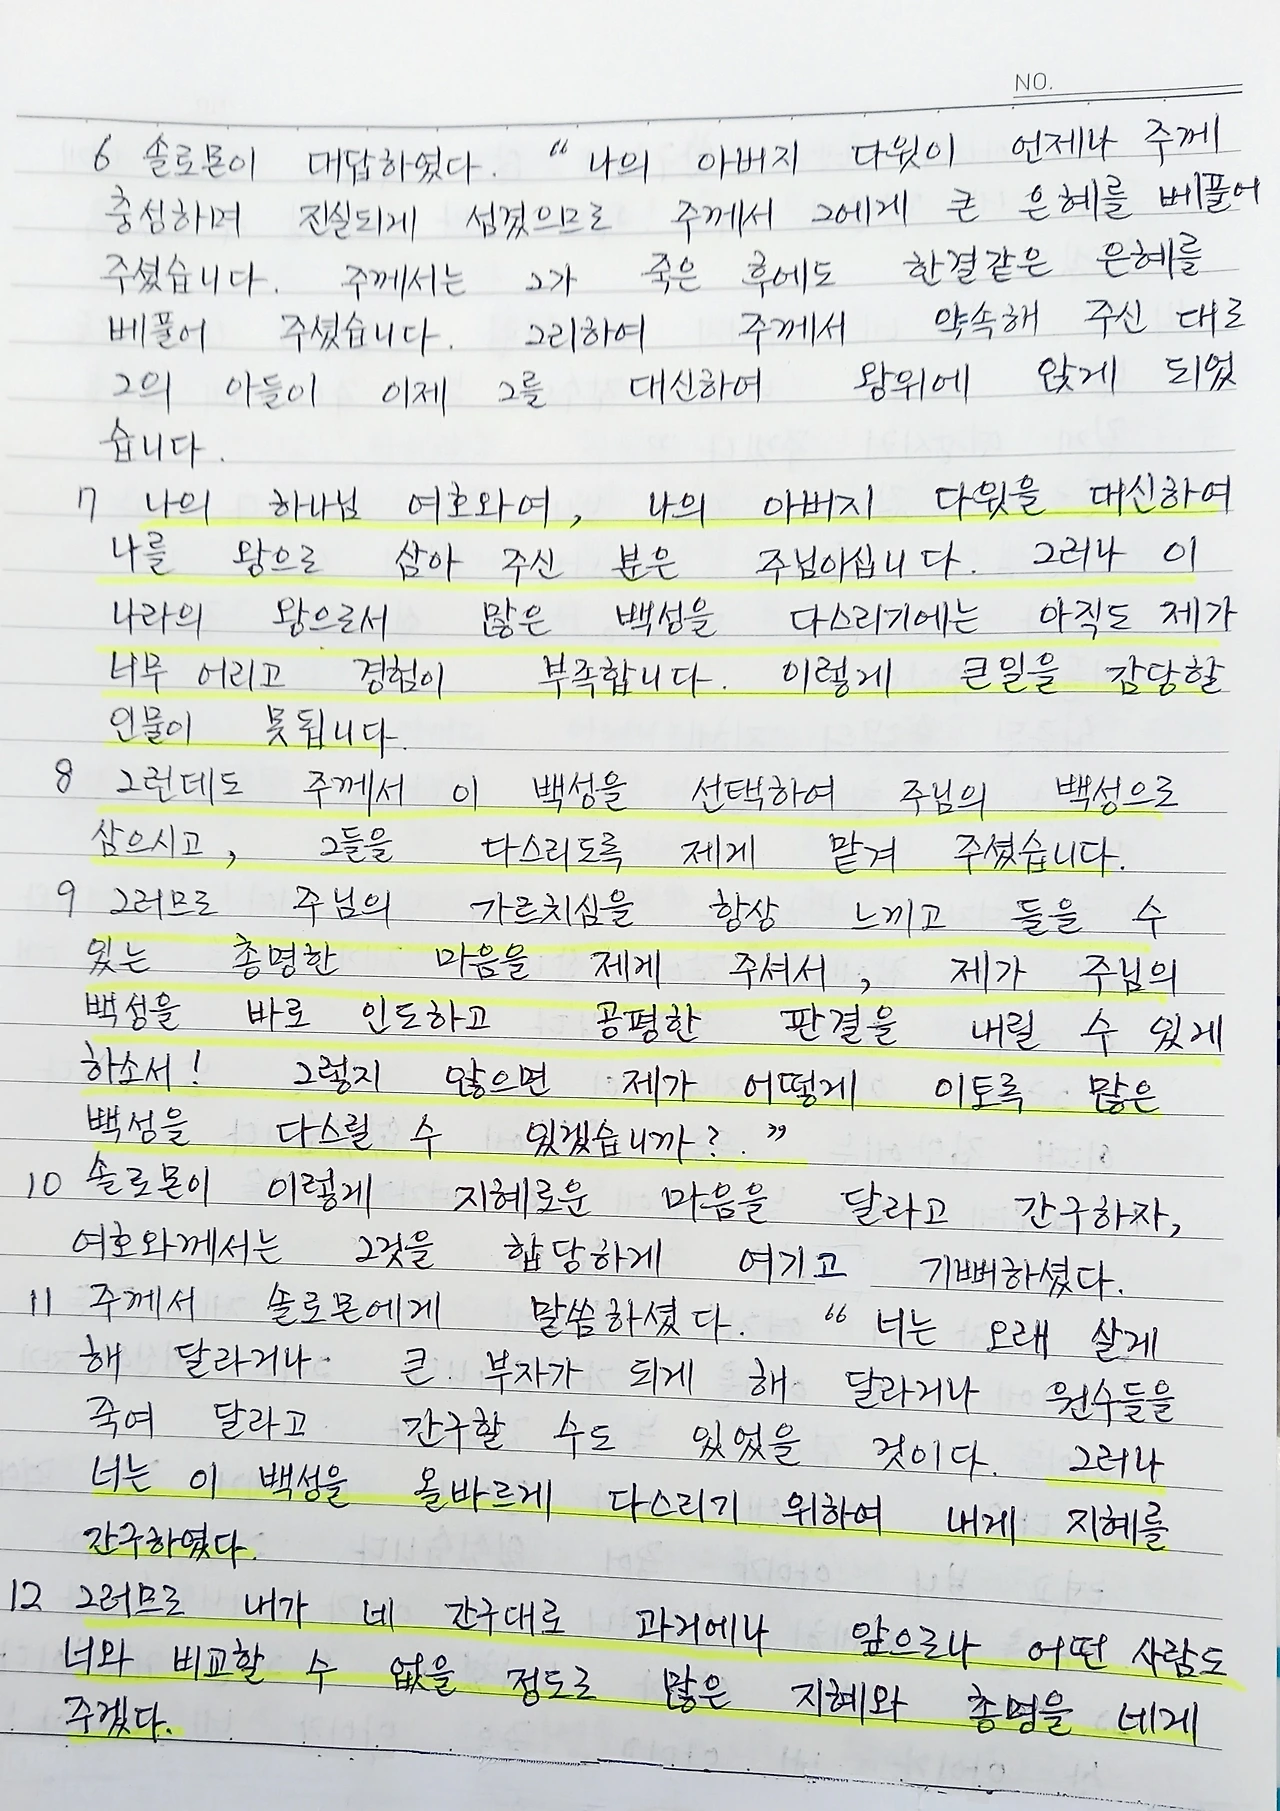 NO.
6 솔로몬이 대답하였다. “나의 아버지 다윗이 언제나 주께
충성하며 진실되게 섬겼으므로 주께서 그에게 큰 은혜를 베풀어
주셨습니다. 주께서는 그가 죽은 후에도 한결같은 은혜를
베풀어 주셨습니다. 그리하여 주께서 약속해 주신 대로
그의 아들이 이제 그를 대신하여 왕위에 앉게 되었
습니다.
7 나의 하나님 여호와여, 나의 아버지 다윗을 대신하여
나를 왕으로 삼아 주신 분은 주님이십니다. 그러나 이
나라의 왕으로서 많은 백성을 다스리기에는 아직도 제가
너무 어리고 경험이 부족합니다. 이렇게 큰일을 감당할
인물이 못됩니다.
8 그런데도 주께서 이 백성을 선택하여 주님의 백성으로
삼으시고, 그들을 다스리도록 제게 맡겨 주셨습니다.
9 그러므로 주님의 가르치심을 항상 느끼고 들을 수
있는 총명한 마음을 제게 주셔서, 제가 주님의
백성을 바로 인도하고 공평한 판결을 내릴 수 있게
하소서! 그렇지 않으면 제가 어떻게 이토록 많은
백성을 다스릴 수 있겠습니까?.”
10 솔로몬이 이렇게 지혜로운 마음을 달라고 간구하자,
여호와께서는 그것을 합당하게 여기고 기뻐하셨다.
11 주께서 솔로몬에게 말씀하셨다. “너는 오래 살게
해 달라거나 큰 부자가 되게 해 달라거나 원수들을
죽여 달라고 간구할 수도 있었을 것이다. 그러나
너는 이 백성을 올바르게 다스리기 위하여 내게 지혜를
간구하였다.
12 그러므로 내가 네 간구대로 과거에나 앞으로나 어떤 사람도
너와 비교할 수 없을 정도로 많은 지혜와 총명을 네게
주겠다.